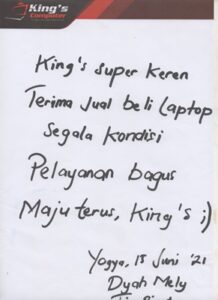 King's
Computer
King's super keren
Terima Jual beli Laptop
Segala kondisi
Pelayanan bagus
Maju terus, King's ;)
Yogya, 15 Juni '21
Dyah Mely